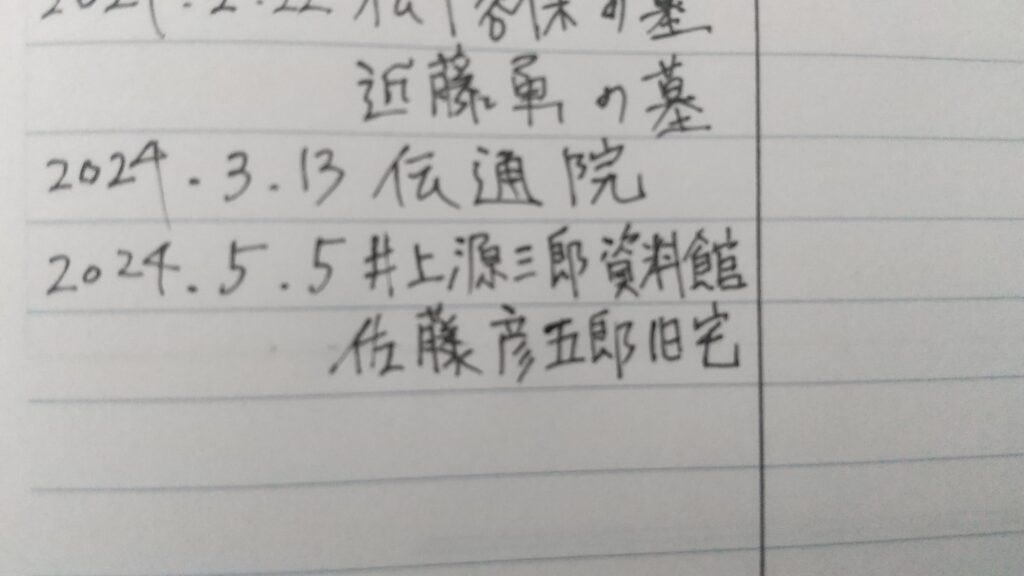 2024.2.22 松平容保の墓
近藤勇の墓
2024.3.13 伝通院
2024.5.5 井上源三郎資料館
佐藤彦五郎旧宅